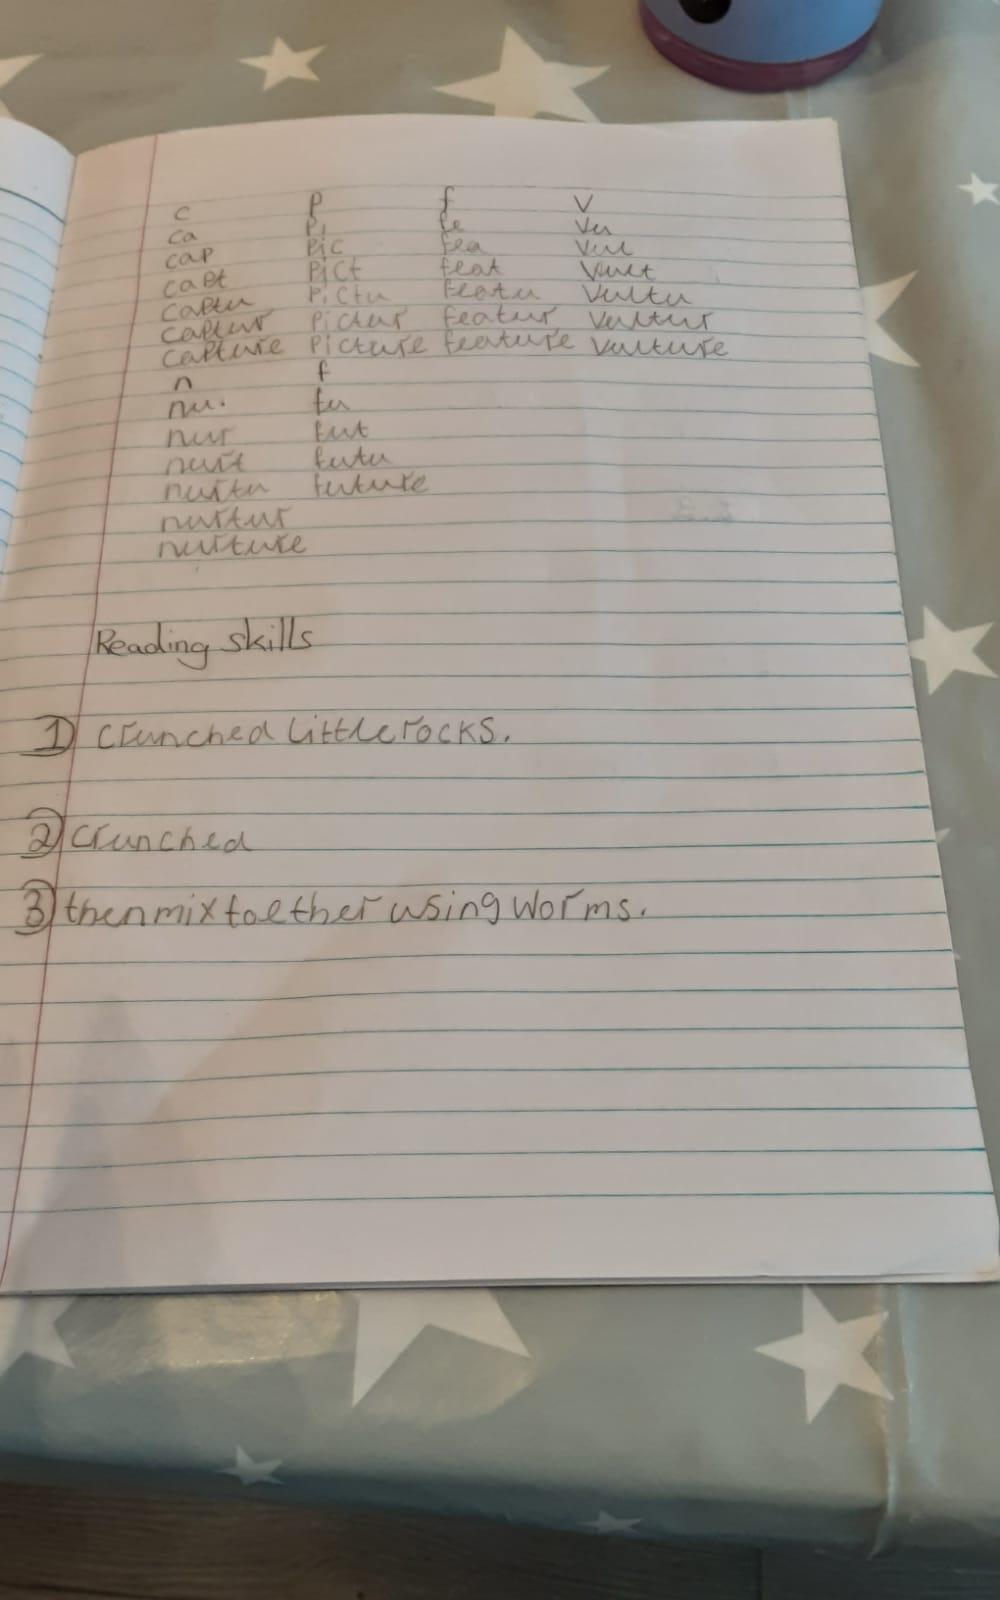 c p f v
ca pi fe vu
cap pic fea vul
capt pict feat vult
captu pictu featu vultu
captur pictur featur vultur
capture picture feature vulture
n f
nu. fu
nur fut
nurt futu
nurtu future
nurtur
nurture
Reading skills
1) crunched little rocks.
2) crunched
3) then mix toether using worms.